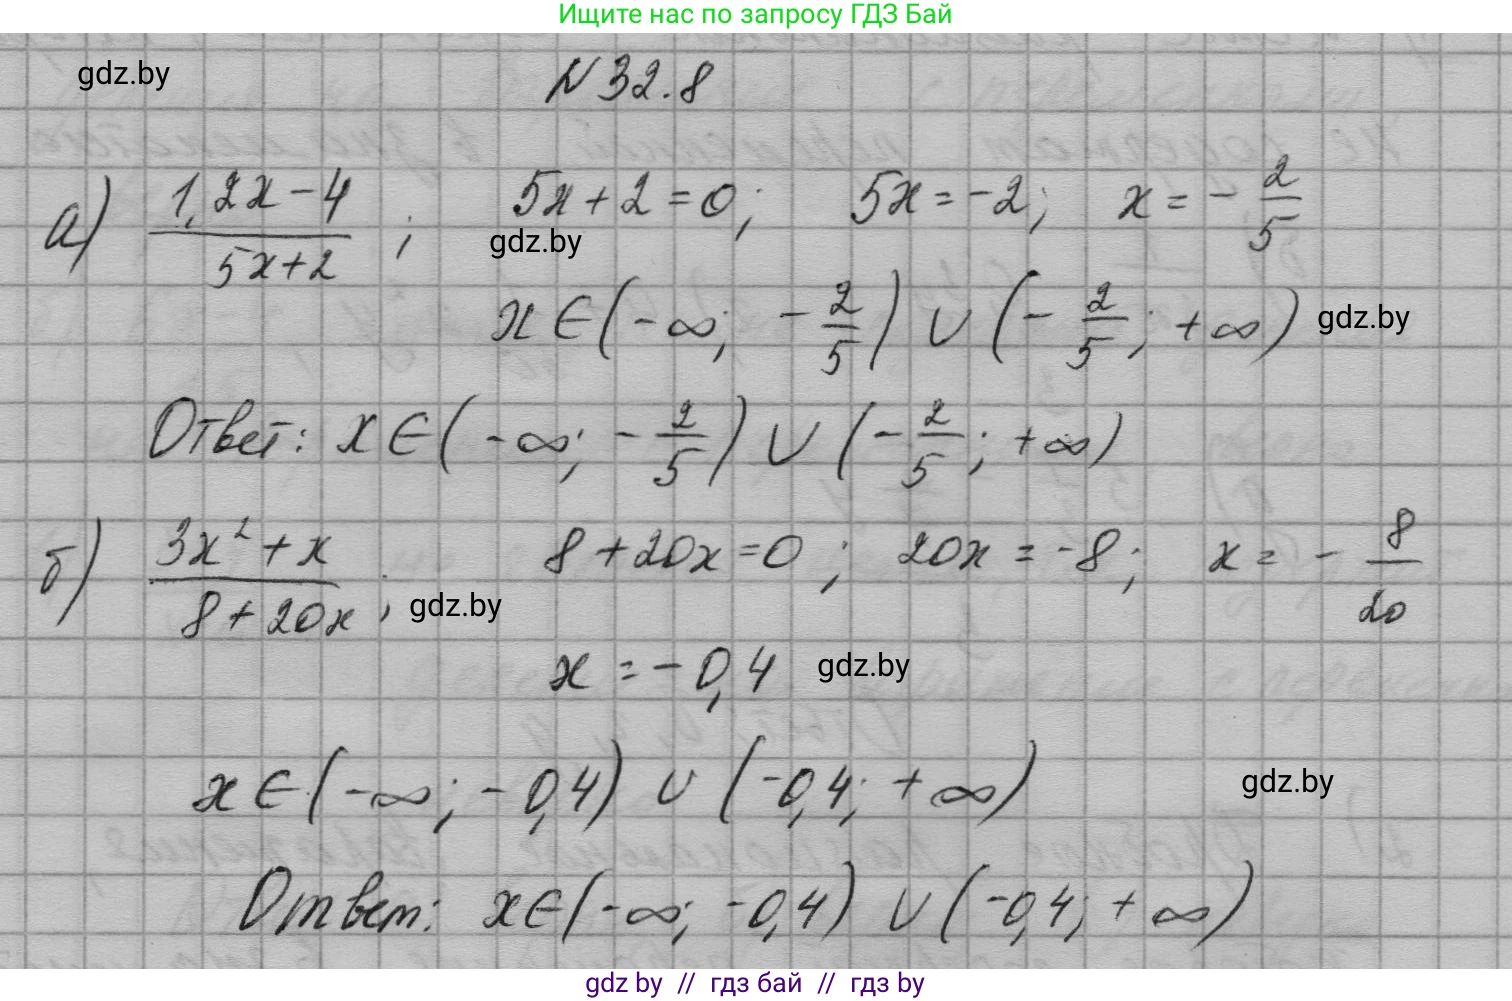 Ищите нас по запросу ГДЗ Бай
gdz.by
N 32.8
а) (1,2x-4)/(5x+2); 5x+2=0; 5x=-2; x=-2/5
gdz.by
x∈(-∞; -2/5) ∪ (-2/5; +∞) gdz.by
Ответ: x∈(-∞; -2/5) ∪ (-2/5; +∞)
б) (3x²+x)/(8+20x); 8+20x=0; 20x=-8; x=-8/20
gdz.by
x=-0,4 gdz.by
x∈(-∞; -0,4) ∪ (-0,4; +∞) gdz.by
Ответ: x∈(-∞; -0,4) ∪ (-0,4; +∞)
gdz by // гдз бай // гдз by